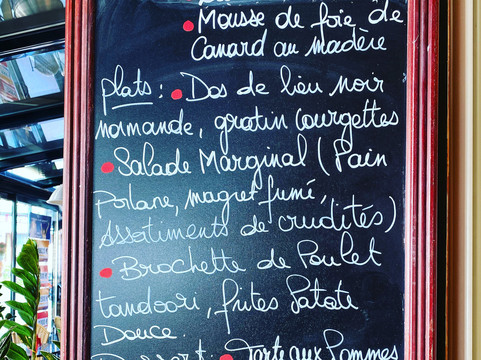 • Mousse de foie de
Canard au madère
plats : • Dos de lieu noir
normande, gratin Courgettes
• Salade Marginal (Pain
Poilane, magret fumé,
Assortiments de crudités)
• Brochette de Poulet
tandoori, frites Patate
Douce.
Dessert : • Tarte aux Pommes